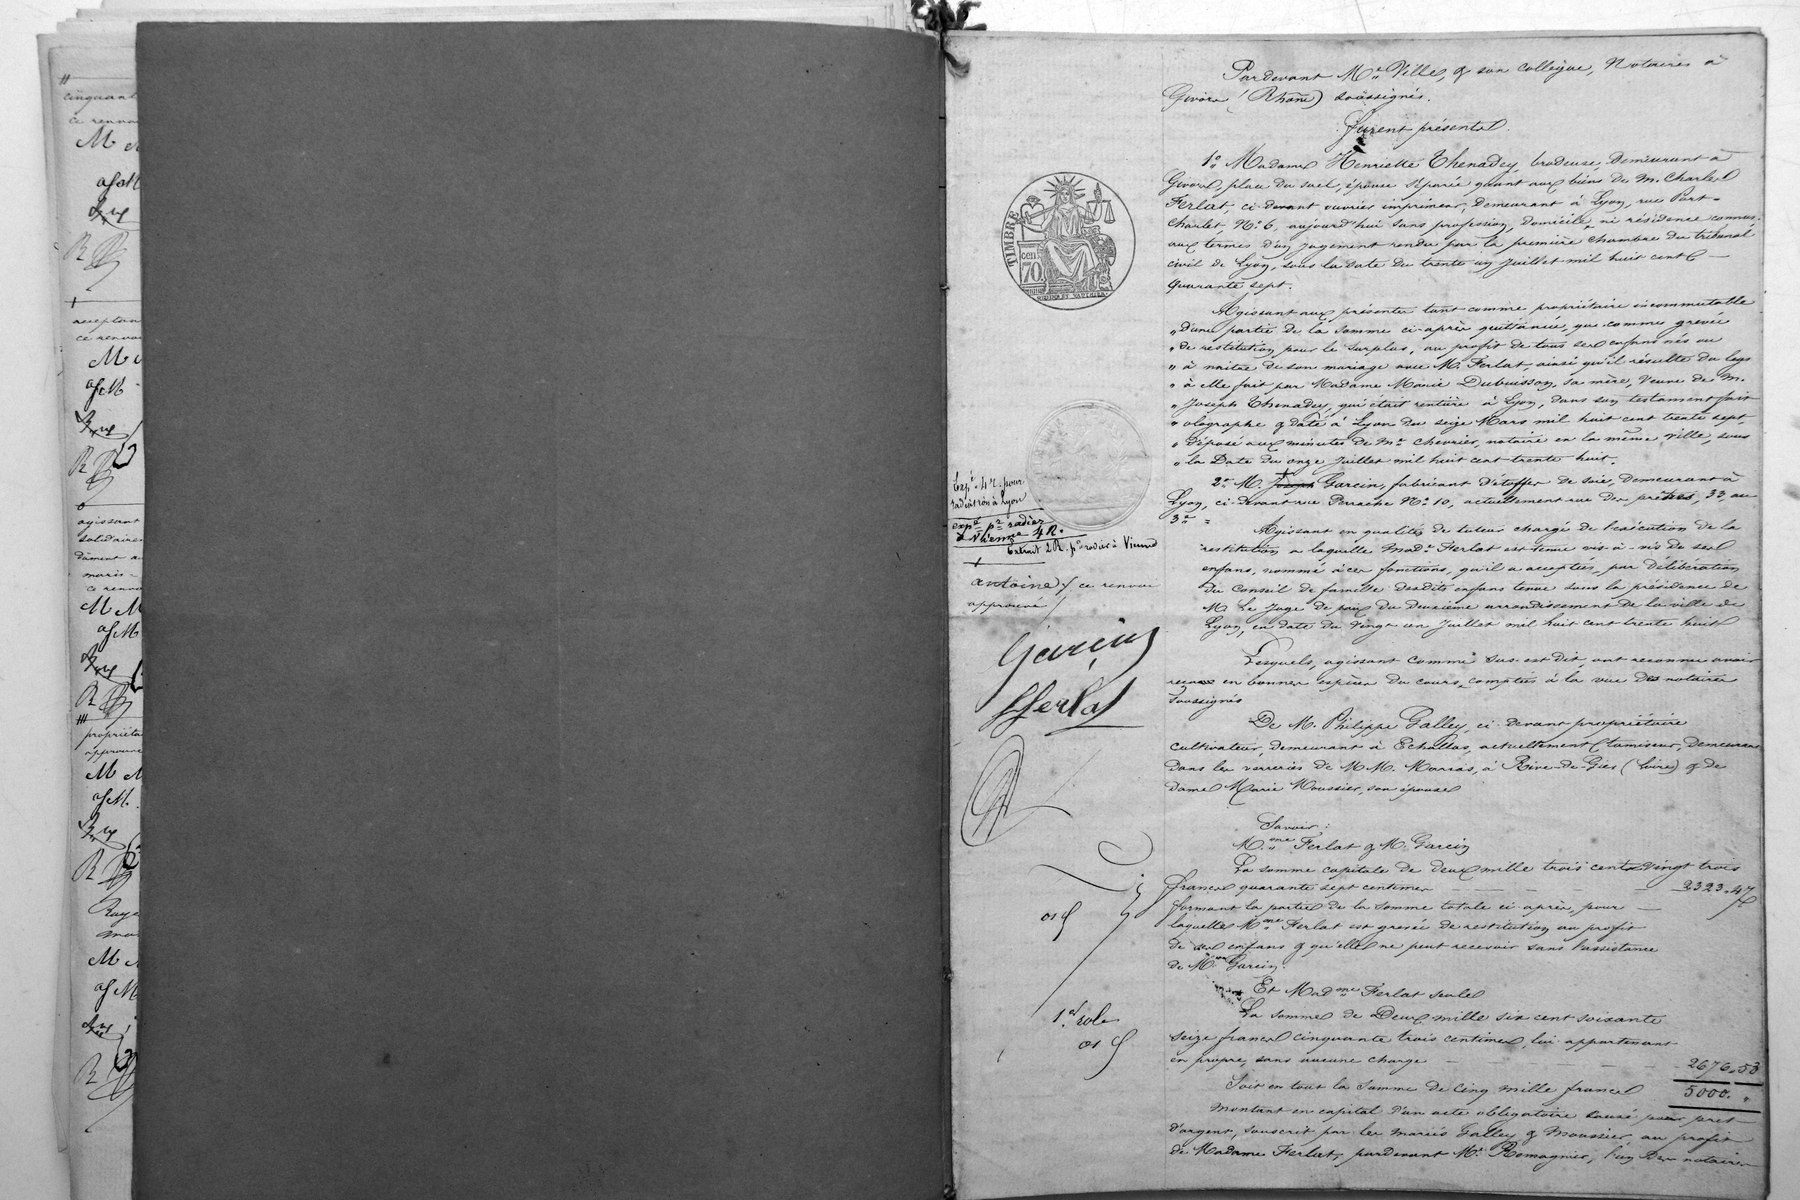 cinquant
M
M
M M
M M
propriéta
Pardevant Me Ville, & son collègue, Notaires à
Givors (Rhône) soussignés.
Furent présents
1o Madame Henriette Thenadey, brodeuse demeurant à
Givors, place du suel, épouse séparée quant aux biens de M. Charles
Ferlat, ci-devant ouvrier imprimeur, demeurant à Lyon, rue Port-
Charlet, No 6, aujourd'hui sans profession, domicile, ni résidence connus.
aux termes d'un jugement rendu par la première chambre du tribunal
civil de Lyon, sous la date du trente un Juillet mil huit cent
quarante sept.
TIMBRE
cen
70
Agissant aux présentes tant comme propriétaire incommutable
" d'une partie de la somme ci-après quittancée, que comme grevée
" de restitution pour le surplus, au profit de tous ses enfans nés ou
" à naitre de son mariage avec M. Ferlat, ainsi qu'il résulte du legs
" à elle fait par Madame Marie Dubuisson, sa mère, Veuve de M.
" Joseph Thenadey, qui était rentière à Lyon, dans son testament fait
" olographe & daté à Lyon du seize Mars mil huit cent trente sept,
" déposé aux minutes de Me Chevrier, notaire en la même ville, sous
" la date du onze Juillet mil huit cent trente huit.
2o M. Garcin, fabricant d'étoffes de soie, demeurant à
Lyon, ci-devant rue Perrache No 10, actuellement rue des prêtres, 33 au
3e =
Expé 4 r. pour
radiation à Lyon
expé pr radier
à Vienne 4 R.
Extrait 2 R. pr radier à Vienne
antoine / ce renvoi
approuvé
Agissant en qualité de tuteur chargé de l'exécution de la
restitution a laquelle Made Ferlat est tenue vis-à-vis de ses
enfans, nommé à ces fonctions, qu'il a acceptées, par délibération
du Conseil de famille desdits enfans tenue sous la présidence de
M. Le Juge de paix du deuxième arrondissement de la ville de
Lyon, en date du vingt un Juillet mil huit cent trente huit
Garcin
Ferlat
Lesquels, agissant comme sus est dit, ont reconnu avoir
reçu en bonnes espèces du cours, comptées à la vue des notaires
soussignés
De M. Philippe Galley, ci-devant propriétaire
cultivateur, demeurant à Echallas, actuellement tamiseur, demeurant
dans les verreries de MM. à Rive-de-Gier (Loire) & de
dame Marie Moussier, son épouse
Savoir:
Mme Ferlat & M. Garcin
La somme capitale de deux mille trois cents vingt trois
francs quarante sept centimes 2323.47
formant la partie de la somme totale ci-après, pour
laquelle Mme Ferlat est grevée de restitution au profit
de ses enfans & qu'elle ne peut recevoir sans l'assistance
de M. Garcin.
Et Madme Ferlat seule
La somme de Deux mille six cent soixante
seize francs cinquante trois centimes, lui appartenant
en propre, sans aucune charge 2676.53
1er role
Soit en tout la somme de Cinq mille francs 5000. "
montant en capital d'un acte obligatoire causé pour prêt
d'argent, souscrit par les mariés Galley & Moussier, au profit
de Madame Ferlat, pardevant Me Romagnier, l'un des notaires